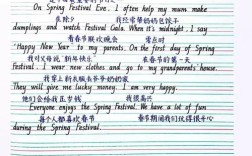 On Spring Festival Eve, I often help my mum make
在除夕 我经常帮助妈妈包饺子
dumplings and watch Festival Gala. When it's midnight, I say
看春节联欢晚会
"Happy New Year" to my parents. On the first day of Spring
我对父母说“新年快乐” 在春节的第一天
Festival, I wear new clothes and go to my grandparents' house.
我穿上新衣服去爷爷奶奶家
They will give me lucky money. I am very happy.
他们会给我压岁钱 我很高兴
Everyone enjoys the Spring Festival. We have a lot of fun
每个人都喜欢春节 春节期间我们玩得很开心
during the Spring Festival.